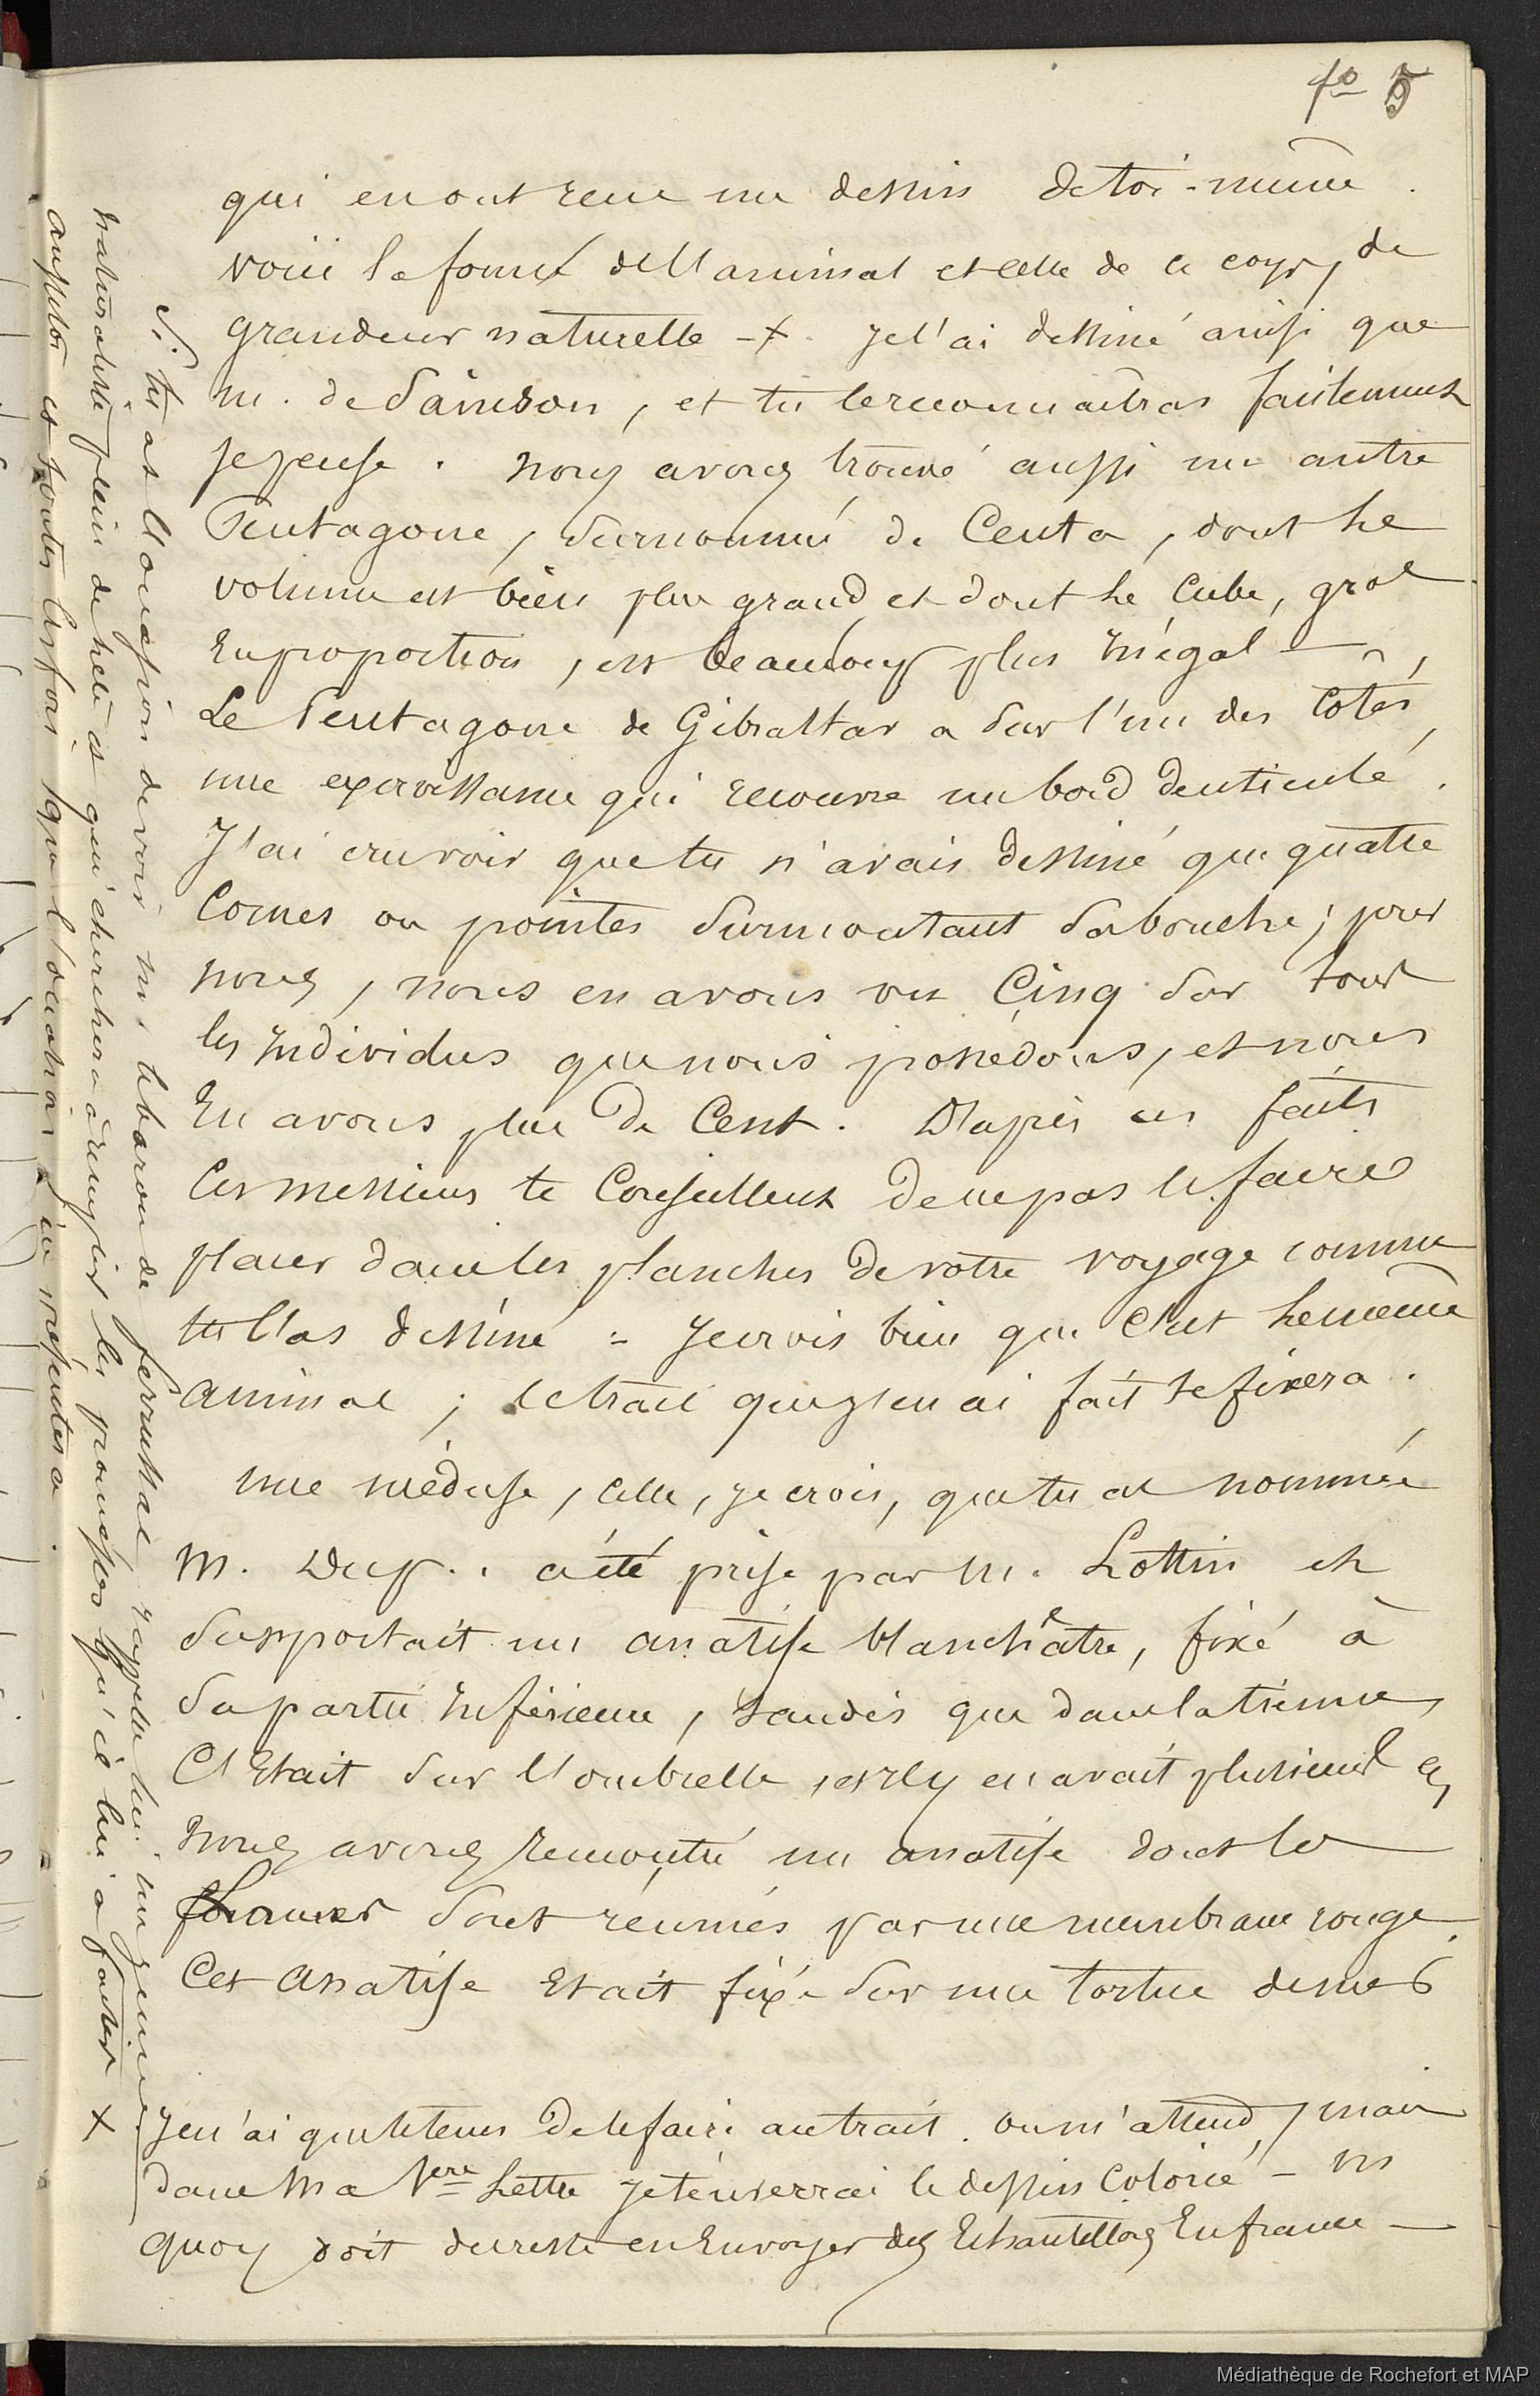 fo 5
qui en ont reçu un dessin de toi-même.
voici la forme de l'animal et celle de ce corps, de
grandeur naturelle - + . je l'ai dessiné ainsi que
m. de Sainson, et tu le reconnaîtras facilement
je pense. nous avons trouvé aussi un autre
Pentagone, surnommé de Ceuta, dont le
volume est bien plus grand et dont le Cube, gros
En proportion, est beaucoup plus Inégal —,
Le Pentagone de Gibraltar a sur l'un des Côtés,
une excroissance qui recouvre un bord denticulé.
J'ai cru voir que tu n'avais dessiné que quatre
Cornes ou pointes surmontant sa bouche ; pour
nous, nous en avons vu Cinq sur tous
les Individus que nous possédons, et nous
En avons plus de Cent. D'après ces faits
Ces messieurs te Conseillent de ne pas le faire
placer dans les planches de votre voyage comme
tu l'as dessiné = je crois bien que C'est le même
animal ; le trait que j'en ai fait te fixera.
une méduse, celle, je crois, que tu as nommée
M. Dup.. a été prise par m. Lottin et
supportait un anatife blanchâtre, fixé à
sa partie Inférieure, tandis que dans la tienne,
C'Etait sur l'ombrelle, et Il y en avait plusieurs
nous avons rencontré un anatife dont les
sont réunies par une membrane rouge.
Cet anatife Etait fixé sur une tortue de mer
+ je n'ai que le tems de le faire au trait. on m'attend, mais
dans ma 1ère Lettre je t'enverrai le dessin Colorié - m
quoy doit du reste en Envoyer des Echantillons En france —
Si tu as l'occasion de voir m. le baron de ferussac rappelle lui un jeune
naturaliste plein de zèle et qui cherchera à remplir les promesses qu'il lui a faites
aussitôt et toutes les fois que l'occasion se présentera.